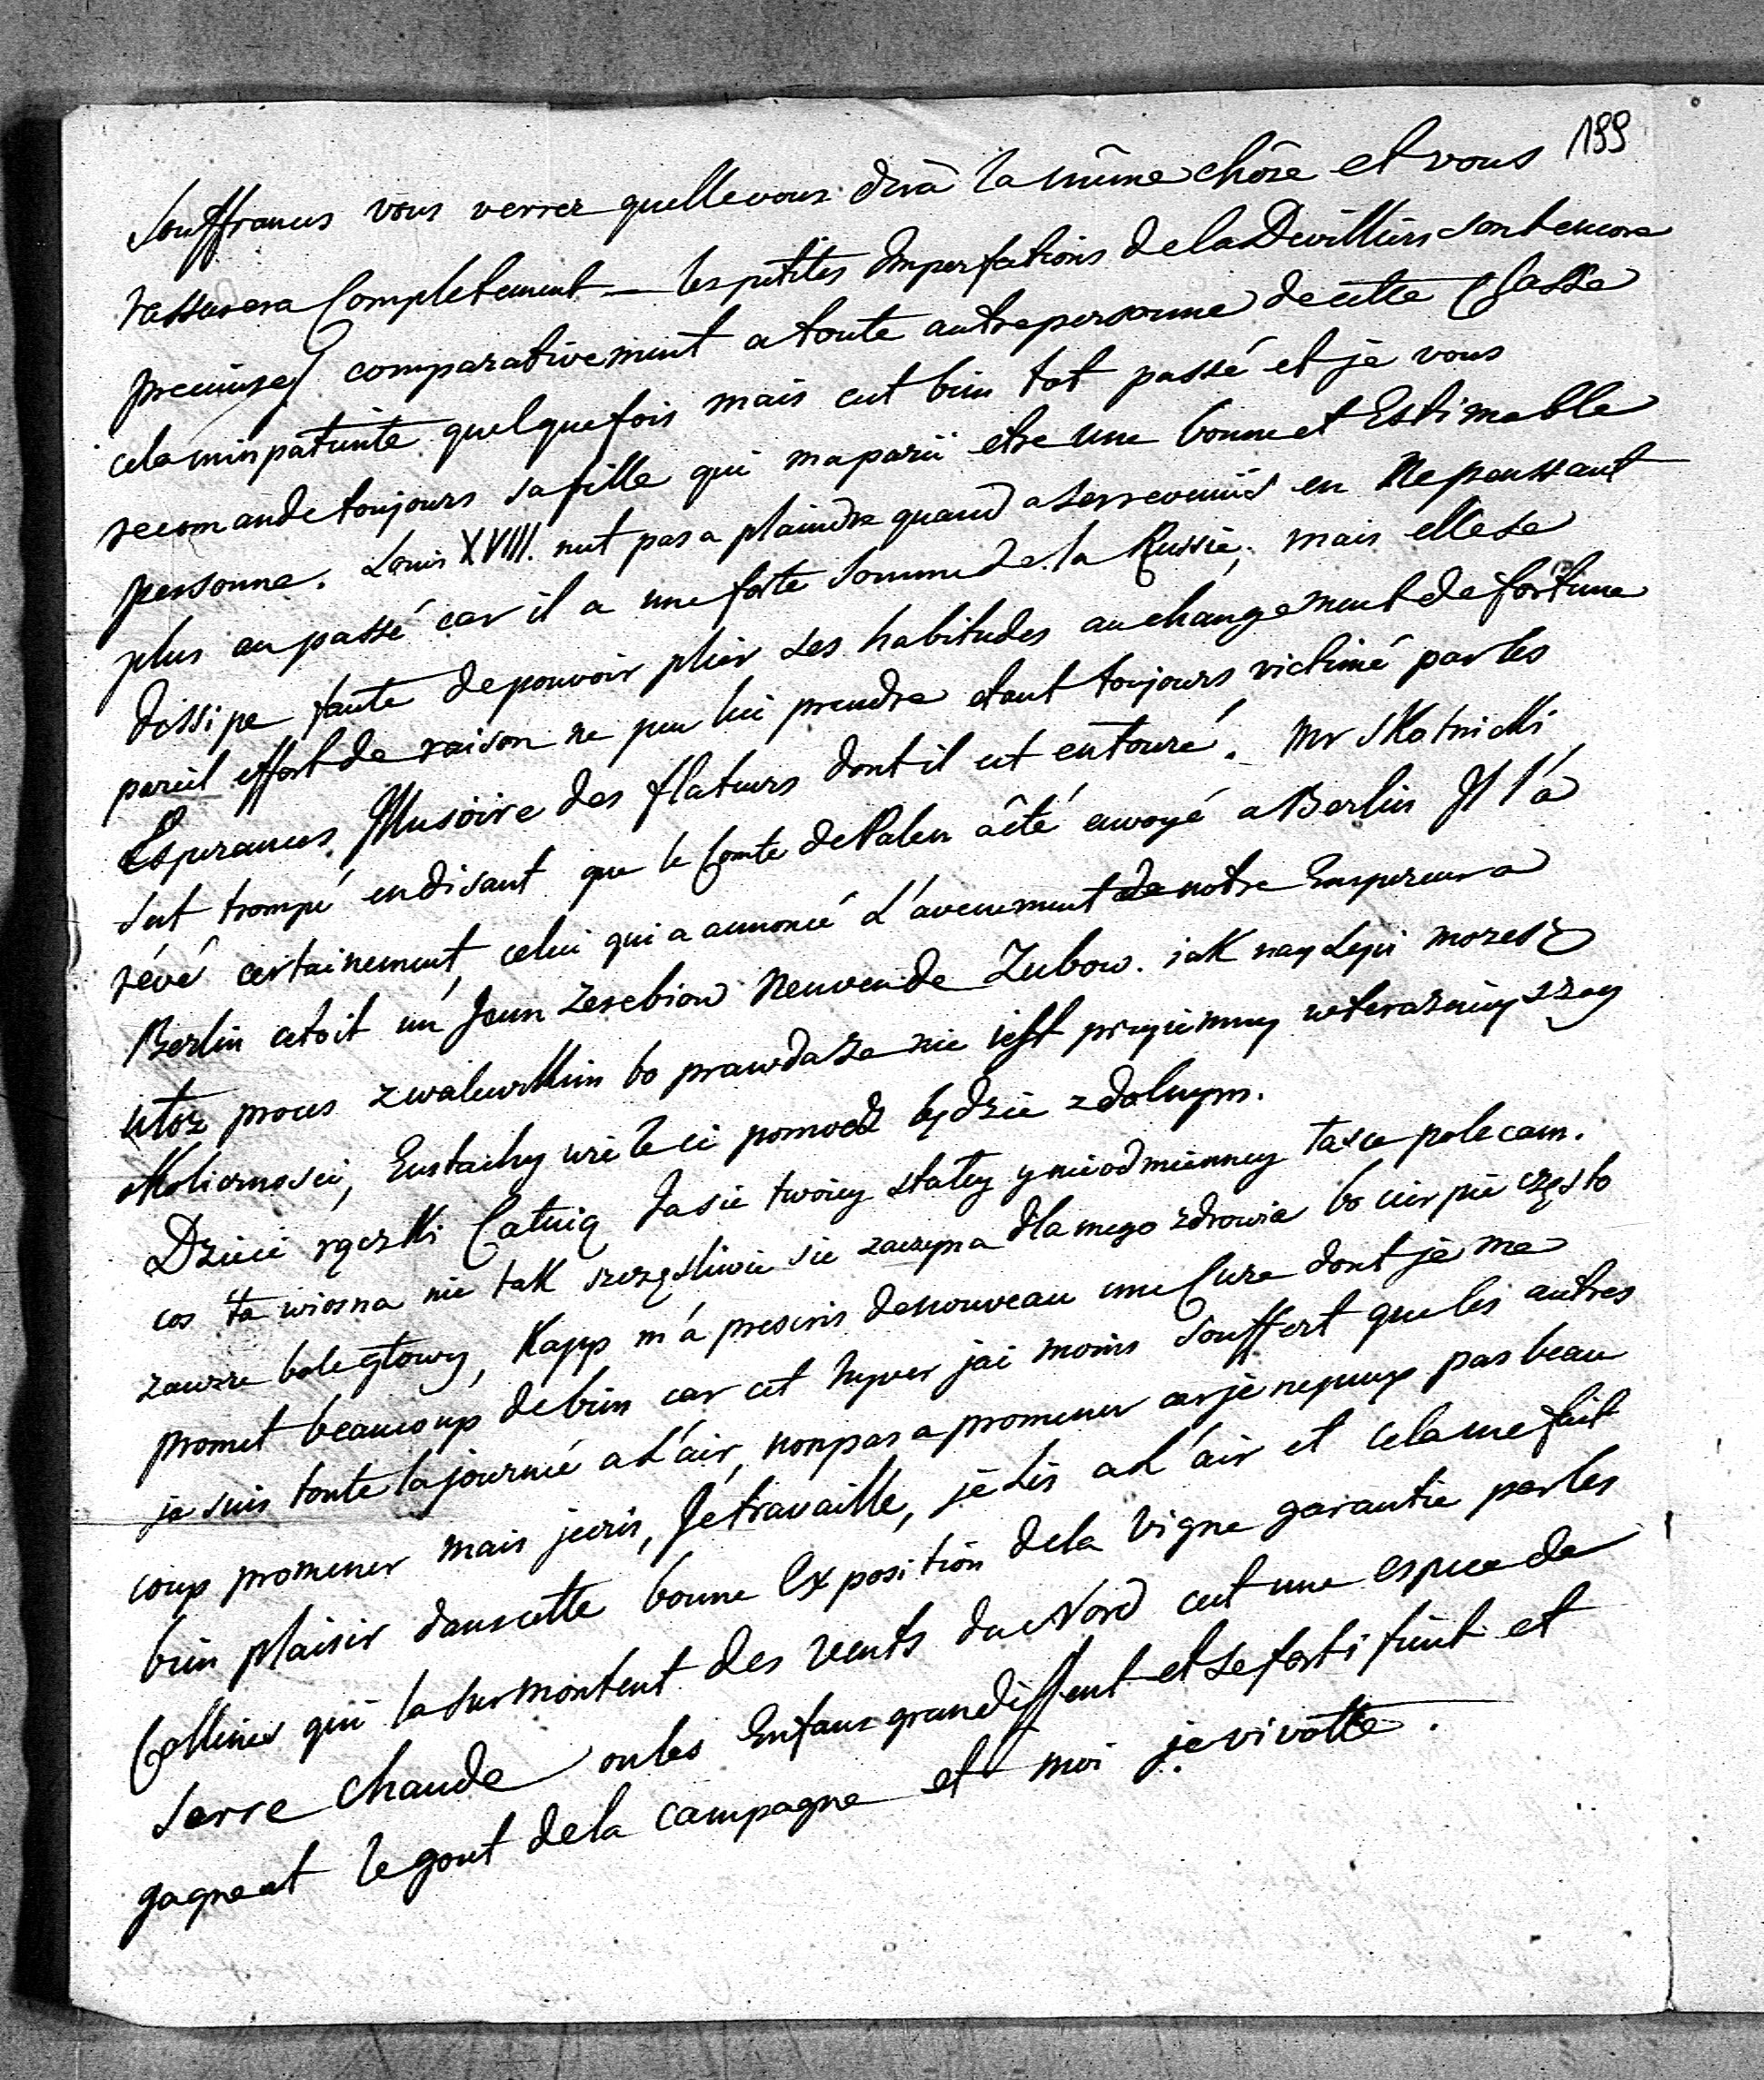 199
Souffrances vous verrez quelle vous dirà la même chôse et vous
rassurera Completement — les petites Imperfections de la Devilliers sont encore
precieuses comparativement a toute autre personne de cette Classe
cela minpatiente quelque fois mais cest bien tot passé et je vous
recomande toujours sa fille qui ma parü etre une bonne et Estimable
personne. Louis XVIII. nest pas a plaindre quand a ses revenüs en Ne pensant
plus au passé car il a une forte Somme de la Russie, mais elle se
dissipe faute de pouvoir plier ses habitudes au changement de fortune
pareil effort de raison ne peu lui prendre etant toujours victimé par les
Esperances Illusoire des flateurs dont il est entouré. Mr Skotnicki
sest trompé en disant que le Comte de Palen a été envoyé a Berlin Il l'a
révé certainement, celui qui a annoncé L'avenement de notre Empereur a
Berlin cetoit un Jeun Zerebiow Neuveu de Zubow. iak naylepi mozesz
utoz proces z walewskim bo prawda ze nie iest przyiemny w terazniyszey
Okolicznosci, Eustachy wiele ci pomodz będzie zdolnym.
Dzieci rączki Całuią Ja sie twoiey stałey y nieodmienney łasce polecam.
cos ta wiosna nie tak szczęsliwie sie zaczyna dla mego zdrowia bo cierpie często
zawsze bole głowy, Kapp m'á prescris de nouveau une Cure dont je me
promet beaucoup de bien car cet hyver jai moins souffert que les autres
je suis toute la journée a L'air, non pas a promener car je ne peux pas beau
coup promener mais jecris, Je travaille, je Lis a L'air et cela me fait
bien plaisir dans cette bonne Exposition de la Vigne garantie par les
Collines qui la surmontent des vents du Nord cest une espece de
Serre Chaude ou les Enfans grandissent et se fortifient et
gagnent le gout de la campagne et moi je vivotte.